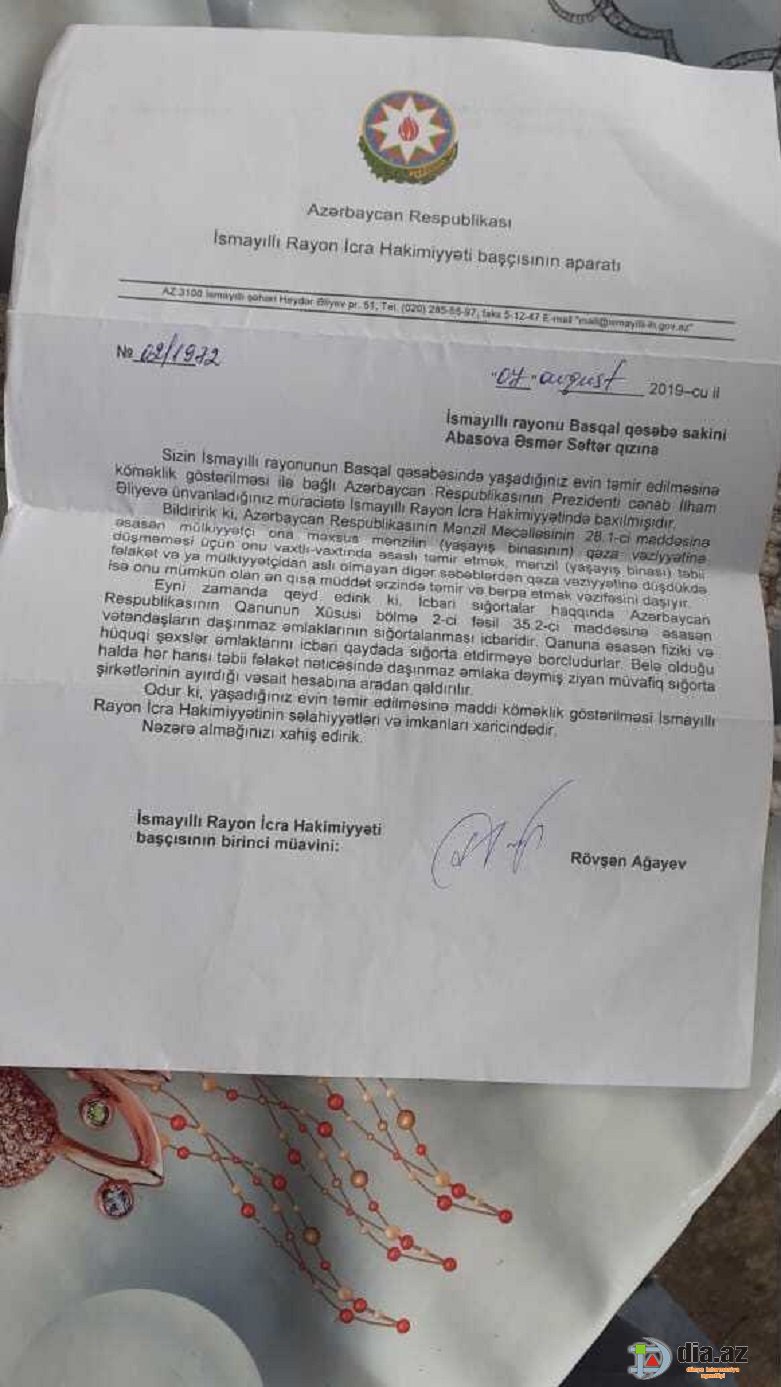 Azərbaycan Respublikası
İsmayıllı Rayon İcra Hakimiyyəti başçısının aparatı
AZ.3100 İsmayıllı şəhəri Heydər Əliyev pr. 51, Tel. (020) 285-55-97, faks 5-12-47 E-mail "mail@ismayilli-ih.gov.az"
№ 02/1932
"07" avqust 2019–cu il
İsmayıllı rayonu Basqal qəsəbə sakini
Abasova Əsmər Səftər qızına
Sizin İsmayıllı rayonunun Basqal qəsəbəsində yaşadığınız evin təmir edilməsinə
köməklik göstərilməsi ilə bağlı Azərbaycan Respublikasının Prezidenti cənab İlham
Əliyevə ünvanladığınız müraciətə İsmayıllı Rayon İcra Hakimiyyətində baxılmışıdır.
Bildiririk ki, Azərbaycan Respublikasının Mənzil Məcəlləsinin 28.1-ci maddəsinə
əsasən mülkiyyətçi ona məxsus mənzilin (yaşayış binasının) qəza vəziyyətinə
düşməməsi üçün onu vaxtlı-vaxtında əsaslı təmir etmək, mənzil (yaşayış binası) təbii
fəlakət və ya mülkiyyətçidən aslı olmayan digər səbəblərdən qəza vəziyyətinə düşdükdə
isə onu mümkün olan ən qısa müddət ərzində təmir və bərpa etmək vəzifəsini daşıyır.
Eyni zamanda qeyd edirik ki, İcbari sığortalar haqqında Azərbaycan
Respublikasının Qanunun Xüsusi bölmə 2-ci fəsil 35.2-ci maddəsinə əsasən
vətəndaşların daşınmaz əmlaklarının sığortalanması icbaridir. Qanuna əsasən fiziki və
hüquqi şəxslər əmlaklarını icbari qaydada sığorta etdirməyə borcludurlar. Belə olduğu
halda hər hansı təbii fəlakət nəticəsində daşınmaz əmlaka dəymiş ziyan müvafiq sığorta
şirkətlərinin ayırdığı vəsait hesabına aradan qaldırılır.
Odur ki, yaşadığınız evin təmir edilməsinə maddi köməklik göstərilməsi İsmayıllı
Rayon İcra Hakimiyyətinin səlahiyyətləri və imkanları xaricindədir.
Nəzərə almağınızı xahiş edirik.
İsmayıllı Rayon İcra Hakimiyyəti
başçısının birinci müavini:
Rövşən Ağayev
dia.az
dünya informasiya
agentliyi